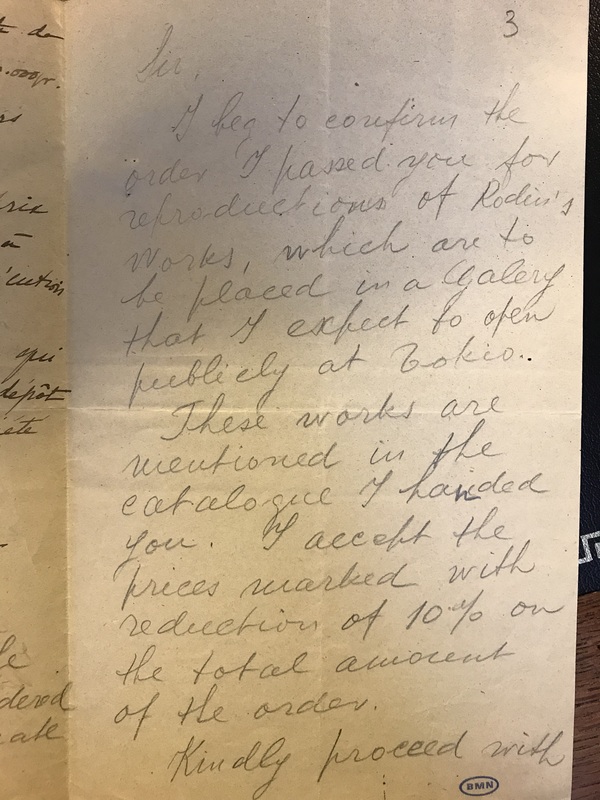 3
Sir,
I beg to confirm the
order I passed you for
reproductions of Rodin's
works, which are to
be placed in a Galery
that I expect to open
publicly at Tokio..
These works are
mentioned in the
catalogue I handed
you. I accept the
prices marked with
reduction of 10% on
the total amount
of the order.
Kindly proceed with
BMN
de
à
qui
dépôt